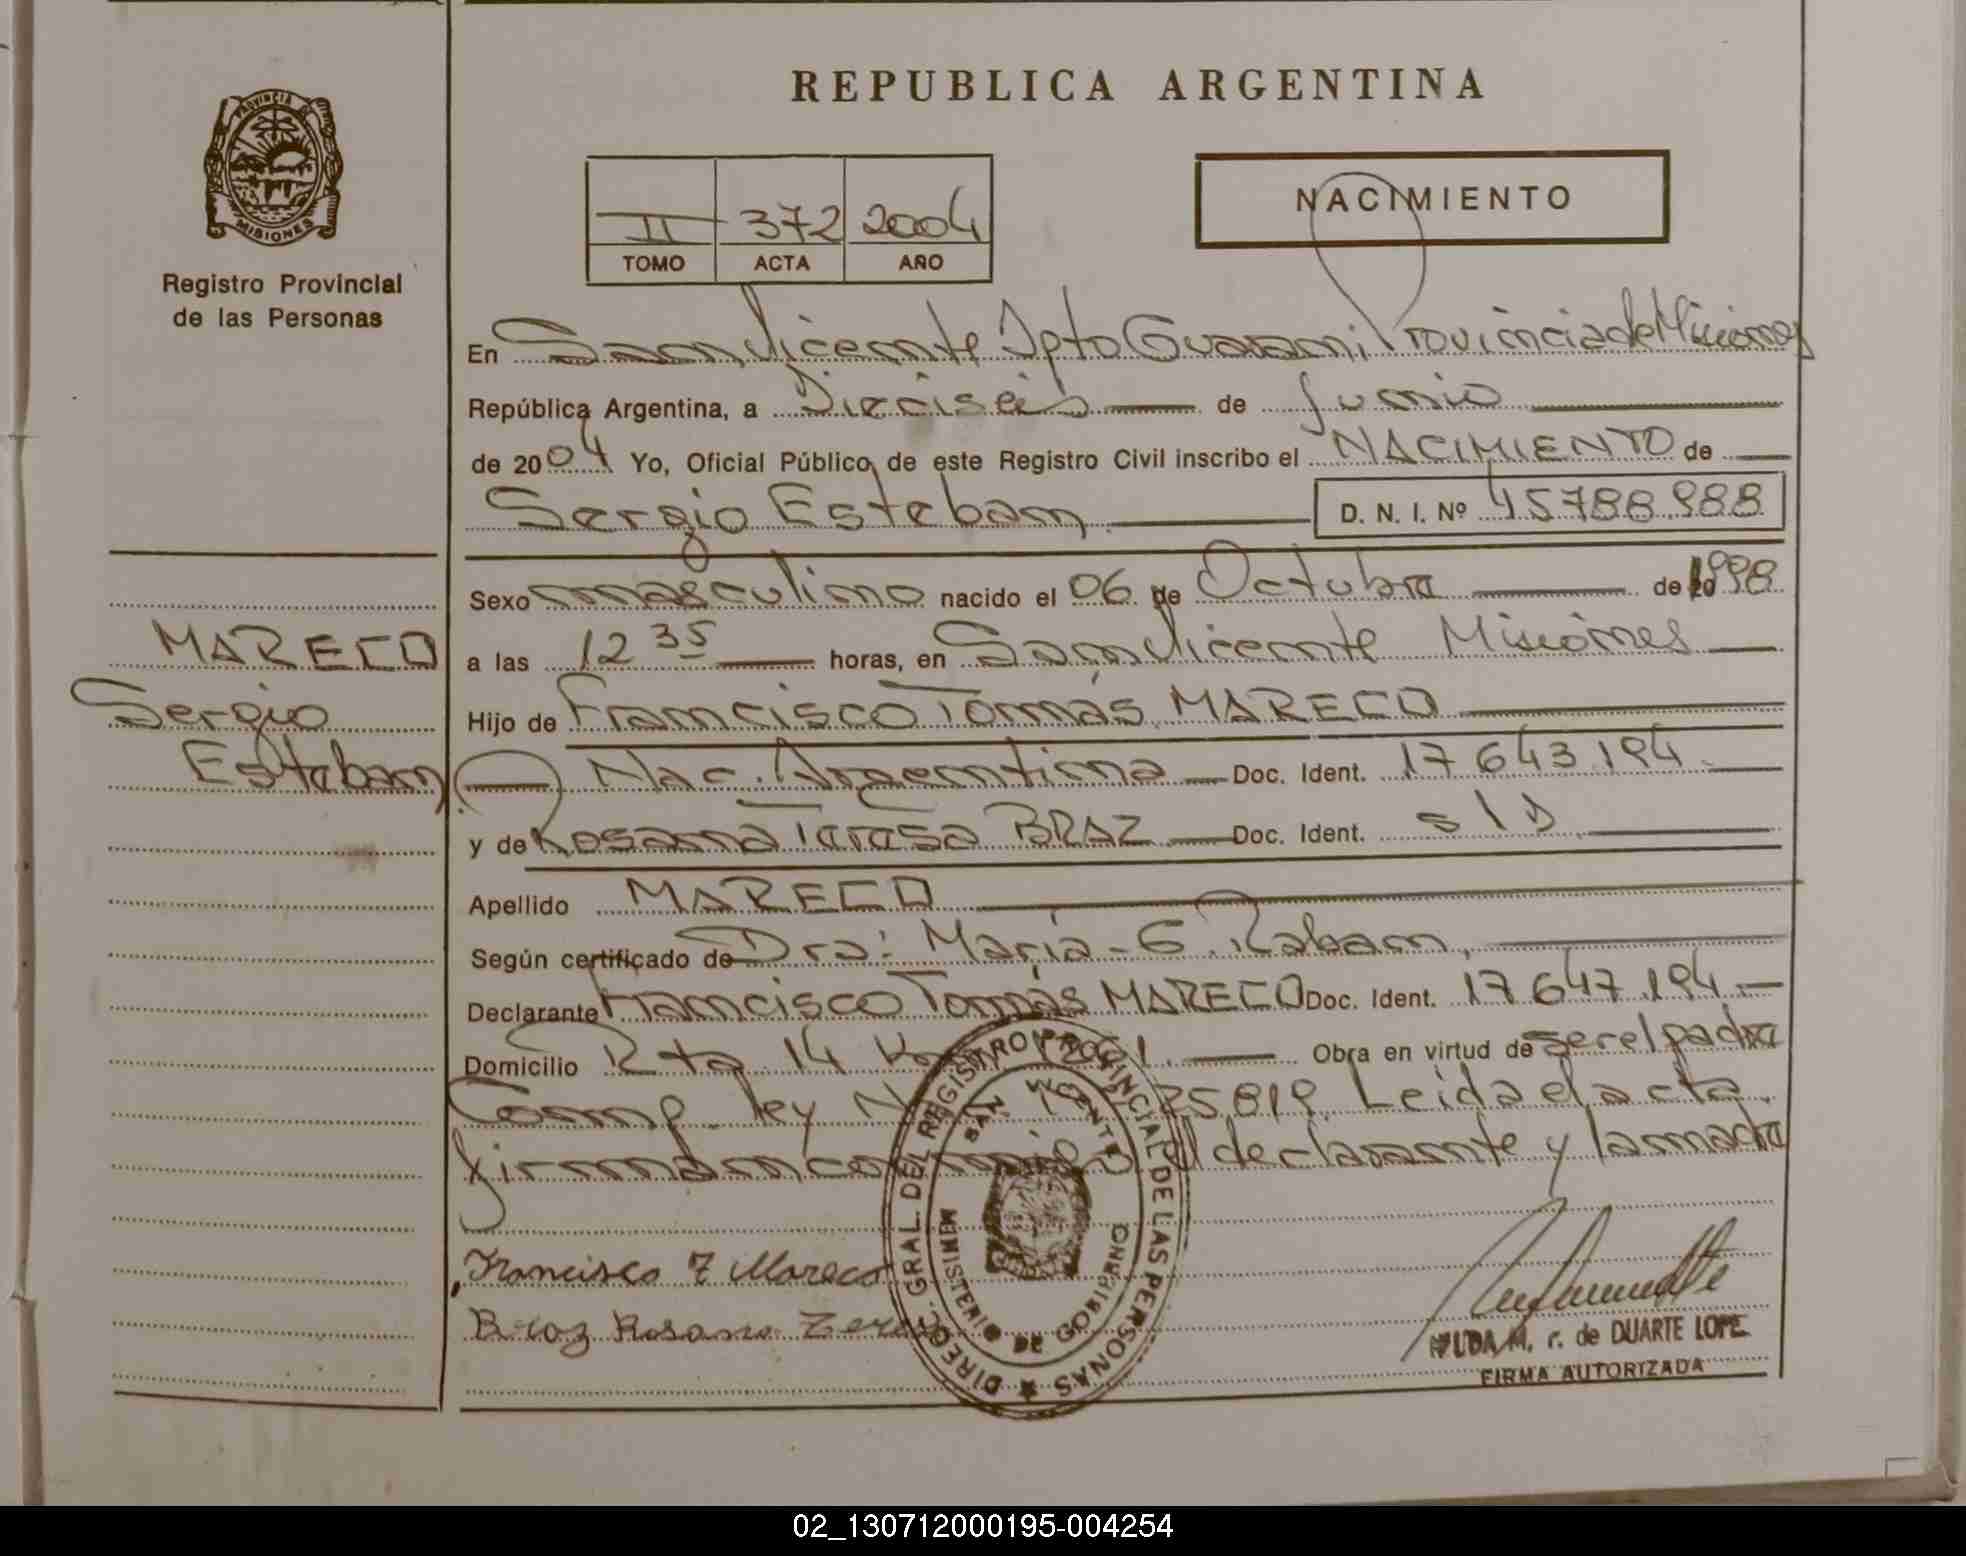 REPUBLICA ARGENTINA
PROVINCIA DE
MISIONES
Registro Provincial
de las Personas
II 372 2004
TOMO ACTA AÑO
NACIMIENTO
En San Vicente Dpto Guarani Provincia de Misiones
República Argentina, a Dieciseis de Junio
de 2004 Yo, Oficial Público de este Registro Civil inscribo el NACIMIENTO de
Sergio Esteban D. N. I. Nº 45788.988
Sexo masculino nacido el 06 de Octubre de 1998
MARECO
Sergio
Esteban
a las 12 35 horas, en San Vicente Misiones
Hijo de Francisco Tomás MARECO
Nac. Argentina Doc. Ident. 17 643.194
y de Rosana Teresa BRAZ Doc. Ident. s/D
Apellido MARECO
Según certificado de Dra: María G. Raban
Declarante Francisco Tomás MARECO Doc. Ident. 17 647.194
Domicilio Rta 14 Obra en virtud de ser el padre
Comp. ley N 25.819 Leida el acta
firman conmigo el declarante y la madre
Francisco T Mareco
Braz Rosana
DIREC. GRAL. DEL REGISTRO PROVINCIAL DE LAS PERSONAS
SAN VICENTE
MINISTERIO DE GOBIERNO
HILDA M. r. de DUARTE LOPE
FIRMA AUTORIZADA
02_130712000195-004254